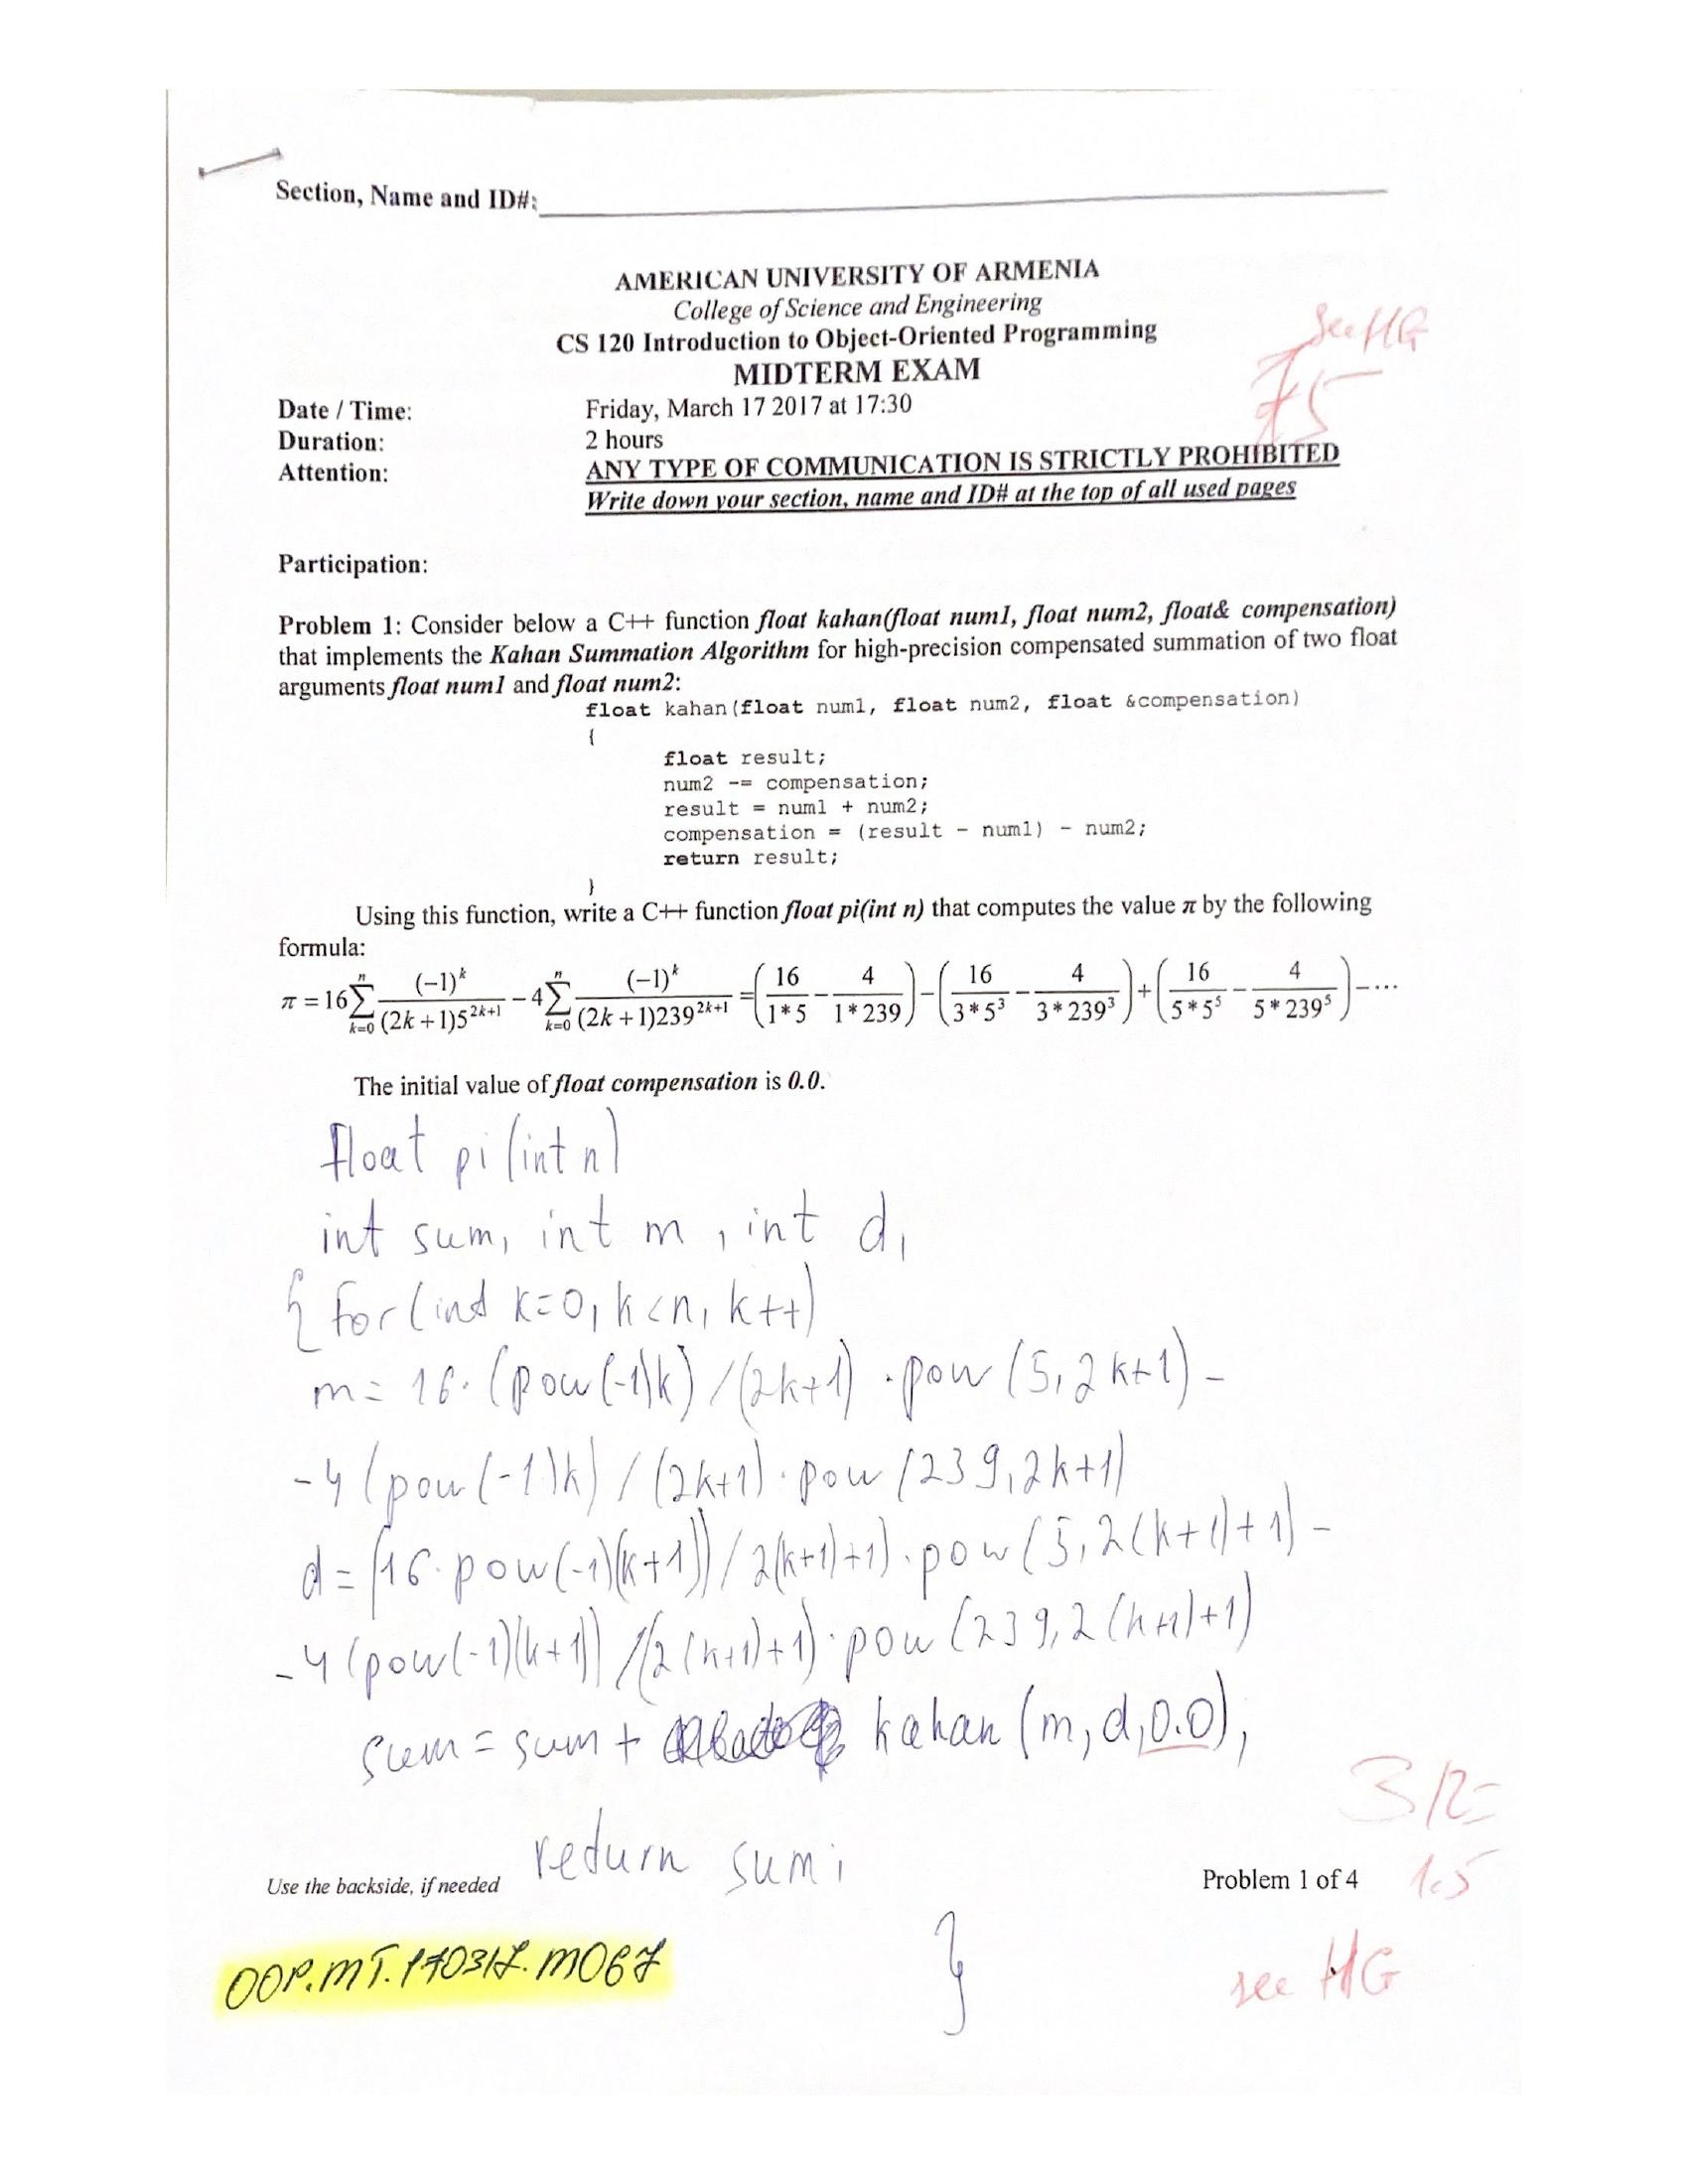 Section, Name and ID#:
AMERICAN UNIVERSITY OF ARMENIA
College of Science and Engineering
CS 120 Introduction to Object-Oriented Programming
see HG
MIDTERM EXAM
Date / Time: Friday, March 17 2017 at 17:30
Duration: 2 hours
Attention: ANY TYPE OF COMMUNICATION IS STRICTLY PROHIBITED
Write down your section, name and ID# at the top of all used pages
Participation:
Problem 1: Consider below a C++ function float kahan(float num1, float num2, float& compensation)
that implements the Kahan Summation Algorithm for high-precision compensated summation of two float
arguments float num1 and float num2:
float kahan(float num1, float num2, float &compensation)
{
float result;
num2 -= compensation;
result = num1 + num2;
compensation = (result - num1) - num2;
return result;
}
Using this function, write a C++ function float pi(int n) that computes the value π by the following
formula:
π = 16∑_{k=0}^{n} (-1)^k / ((2k+1)5^{2k+1}) - 4∑_{k=0}^{n} (-1)^k / ((2k+1)239^{2k+1}) = (16/(1*5) - 4/(1*239)) - (16/(3*5^3) - 4/(3*239^3)) + (16/(5*5^5) - 4/(5*239^5)) - ...
The initial value of float compensation is 0.0.
float pi (int n)
int sum, int m , int d,
{ for (int k=0, k<n, k++)
m = 16· (pow(-1)k) /(2k+1) · pow (5, 2k+1) -
-4 (pow(-1)k) / (2k+1) · pow (239, 2k+1)
d = (16· pow(-1)(k+1)) / 2(k+1)+1) · pow (5, 2(k+1)+1) -
-4 (pow(-1)(k+1)) /(2(k+1)+1) · pow (239, 2(k+1)+1)
sum = sum + kahan (m, d, 0.0),
3/2=
return sum;
Use the backside, if needed
Problem 1 of 4
1.5
}
OOP.MT.170317.M067
see HG